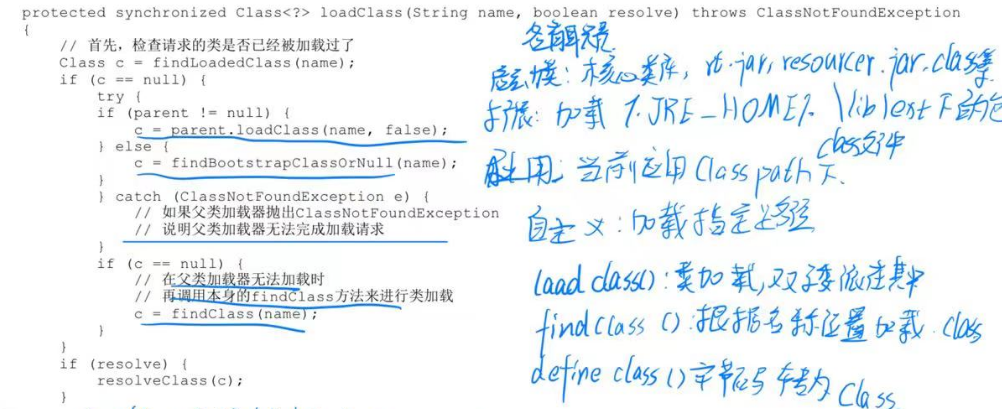 protected synchronized Class<?> loadClass(String name, boolean resolve) throws ClassNotFoundException
{
// 首先，检查请求的类是否已经被加载过了
Class c = findLoadedClass(name);
if (c == null) {
try {
if (parent != null) {
c = parent.loadClass(name, false);
} else {
c = findBootstrapClassOrNull(name);
}
} catch (ClassNotFoundException e) {
// 如果父类加载器抛出ClassNotFoundException
// 说明父类加载器无法完成加载请求
}
if (c == null) {
// 在父类加载器无法加载时
// 再调用本身的findClass方法来进行类加载
c = findClass(name);
}
}
if (resolve) {
resolveClass(c);
}
：核心类库，rt.jar, resourcer.jar.class等
扩展：加载 %JRE_HOME% \lib\ext下的包
class文件
应用：当前应用Classpath下.
自定义：加载指定路径
load class()：类加载,双亲委派在其中
findclass ()：根据名称位置加载.class
define class ()字节码转为Class